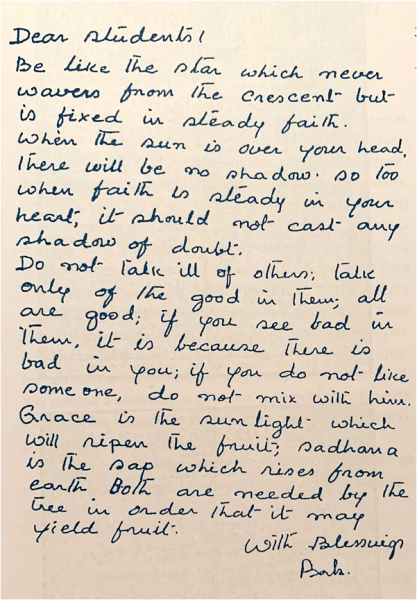 Dear students!
Be like the star which never
wavers from the crescent but
is fixed in steady faith.
when the sun is over your head,
there will be no shadow. so too
when faith is steady in your
heart, it should not cast any
shadow of doubt.
Do not talk ill of others; talk
only of the good in them; all
are good; if you see bad in
them, it is because there is
bad in you; if you do not like
some one, do not mix with him.
Grace is the sunlight which
will ripen the fruit; sadhana
is the sap which rises from
earth Both are needed by the
tree in order that it may
yield fruit.
With Blessings
Baba.